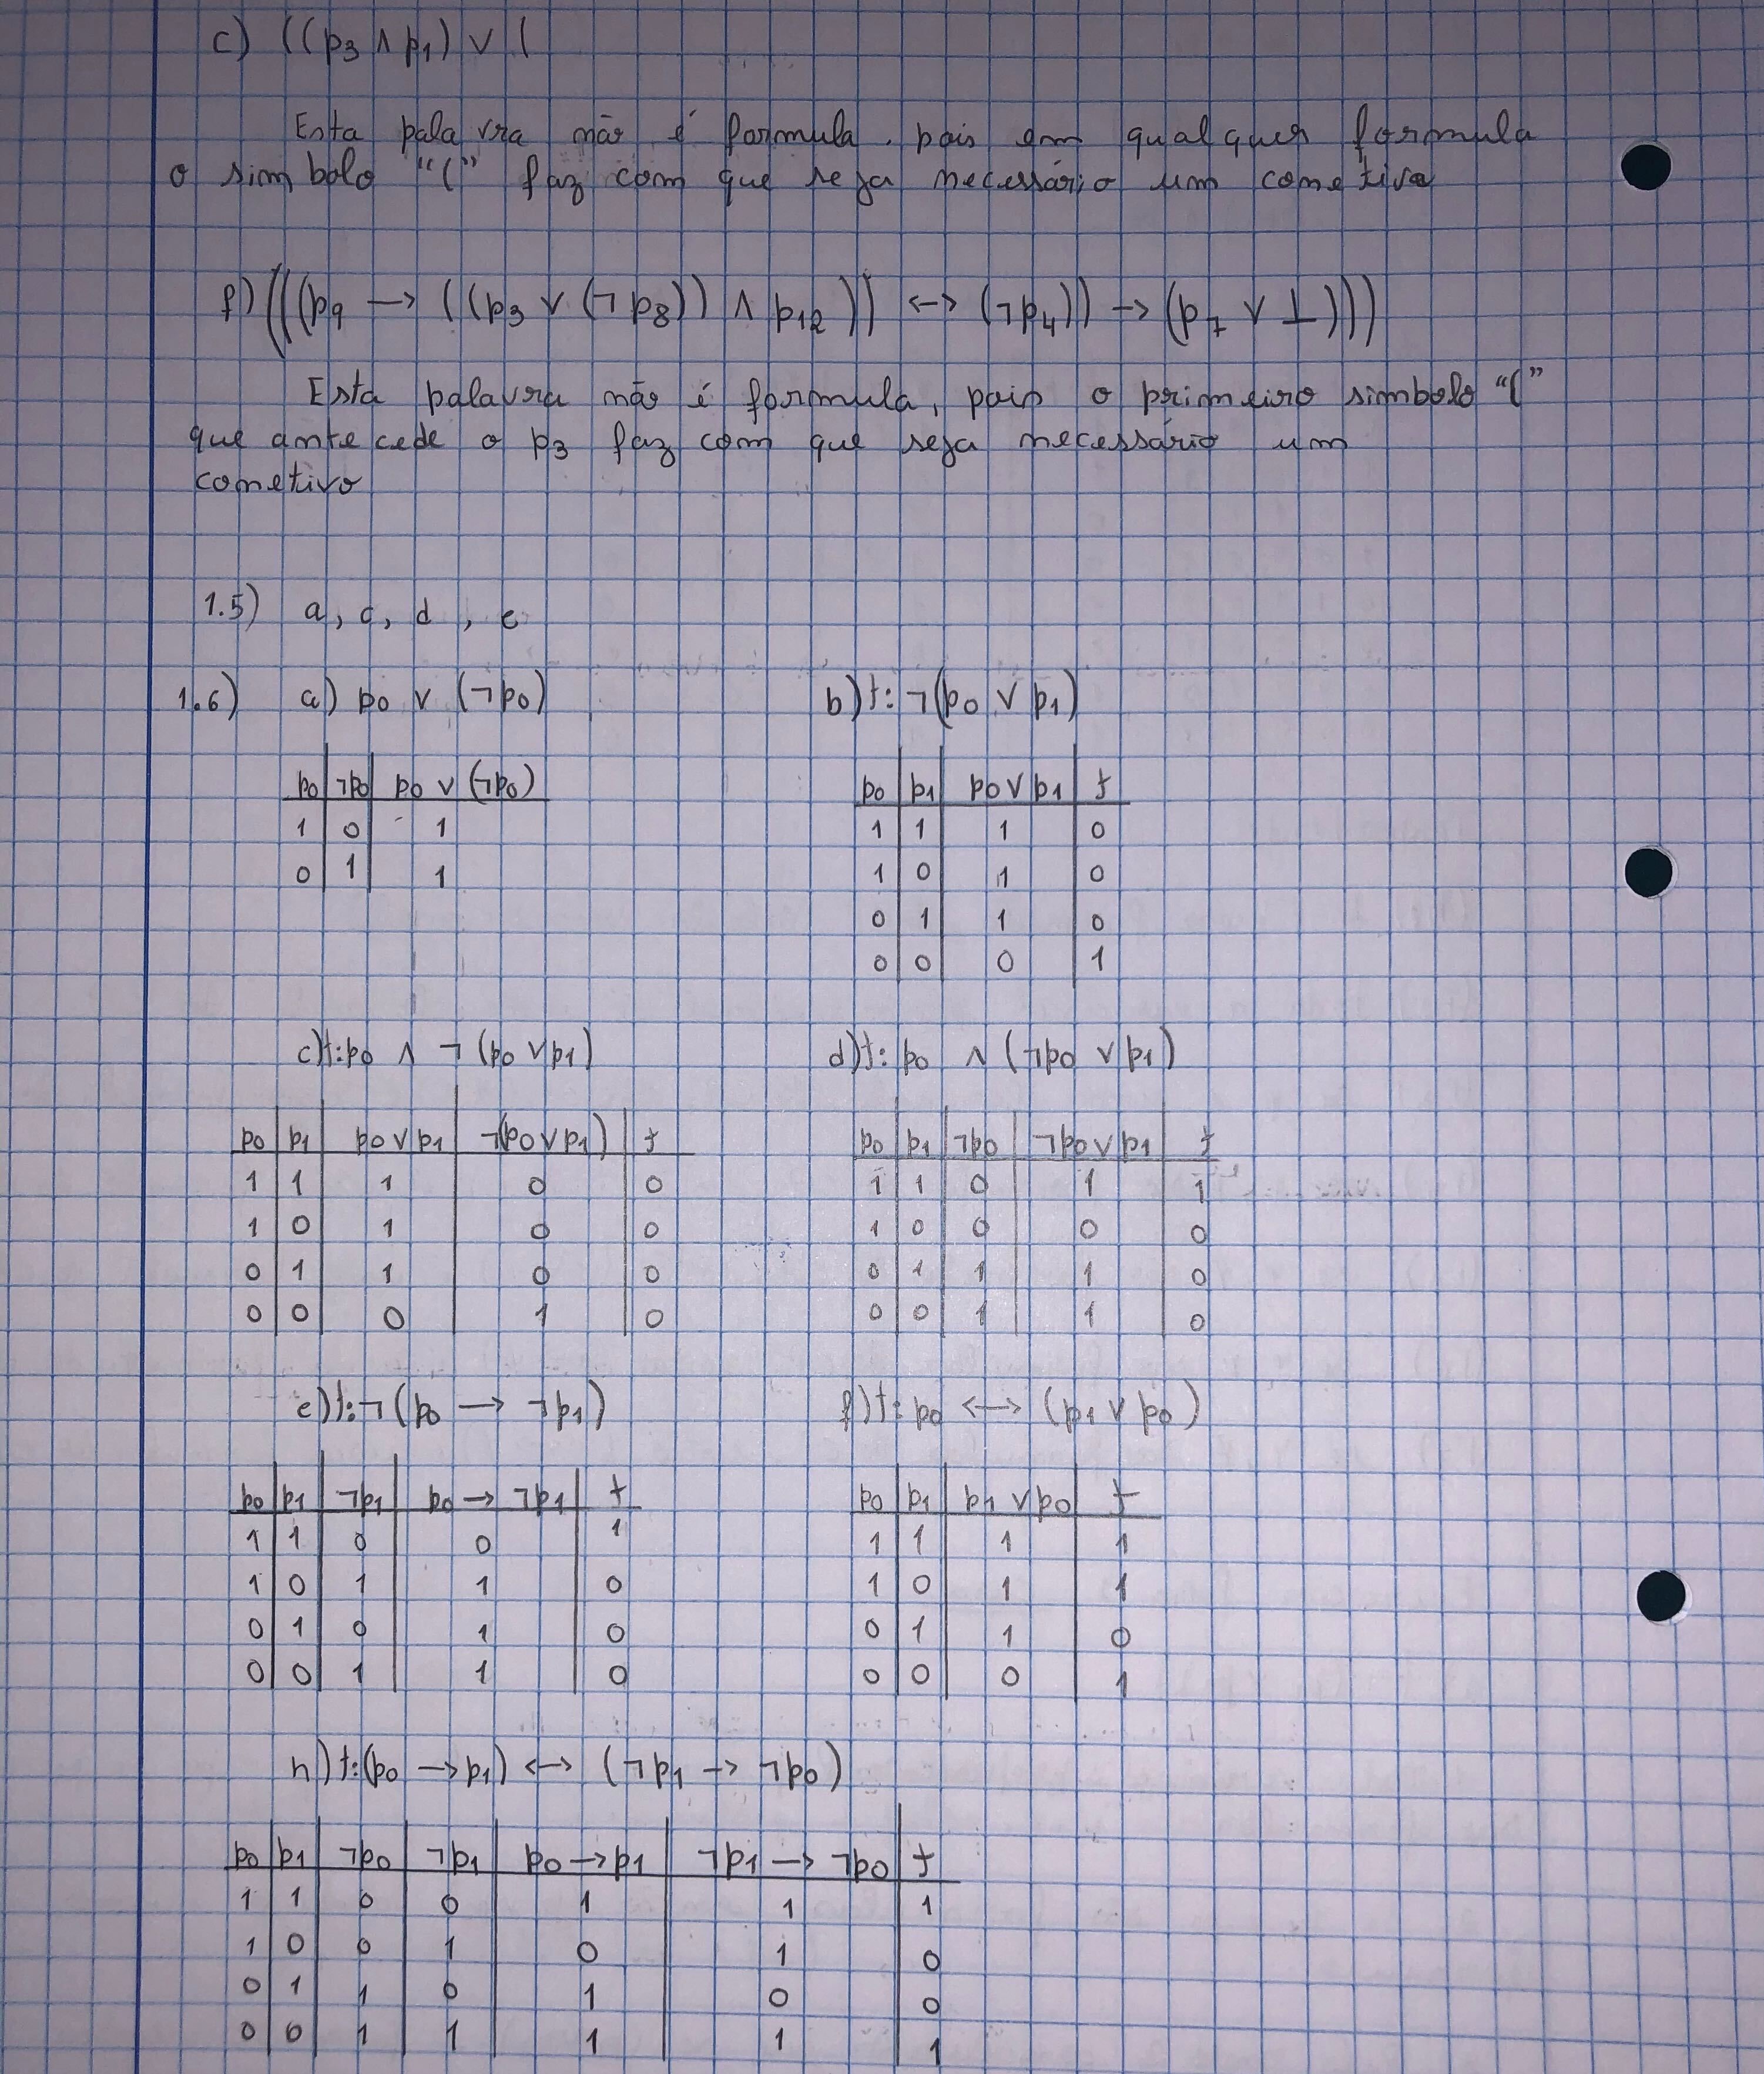 c) ((p3 ∧ p1) ∨ (
Esta palavra não é formula, pois em qualquer formula
o simbolo “(” faz com que seja necessário um conetivo
f) (((p9 → ((p3 ∨ (¬p8)) ∧ p12)) ↔ (¬p4)) → (p7 ∨ ⊥)))
Esta palavra não é formula, pois o primeiro simbolo “(”
que antecede o p3 faz com que seja necessário um
conetivo
1.5) a, c, d, e
1.6) a) p0 ∨ (¬p0)
p0 ¬p0 p0 ∨ (¬p0)
1 0 1
0 1 1
b) f: ¬(p0 ∨ p1)
p0 p1 p0 ∨ p1 f
1 1 1 0
1 0 1 0
0 1 1 0
0 0 0 1
c) f: p0 ∧ ¬(p0 ∨ p1)
p0 p1 p0 ∨ p1 ¬(p0 ∨ p1) f
1 1 1 0 0
1 0 1 0 0
0 1 1 0 0
0 0 0 1 0
d) f: p0 ∧ (¬p0 ∨ p1)
p0 p1 ¬p0 ¬p0 ∨ p1 f
1 1 0 1 1
1 0 0 0 0
0 1 1 1 0
0 0 1 1 0
e) f: ¬(p0 → ¬p1)
p0 p1 ¬p1 p0 → ¬p1 f
1 1 0 0 1
1 0 1 1 0
0 1 0 1 0
0 0 1 1 0
f) f: p0 ↔ (p1 ∨ p0)
p0 p1 p1 ∨ p0 f
1 1 1 1
1 0 1 1
0 1 1 0
0 0 0 1
h) f: (p0 → p1) ↔ (¬p1 → ¬p0)
p0 p1 ¬p0 ¬p1 p0 → p1 ¬p1 → ¬p0 f
1 1 0 0 1 1 1
1 0 0 1 0 1 0
0 1 1 0 1 0 0
0 0 1 1 1 1 1